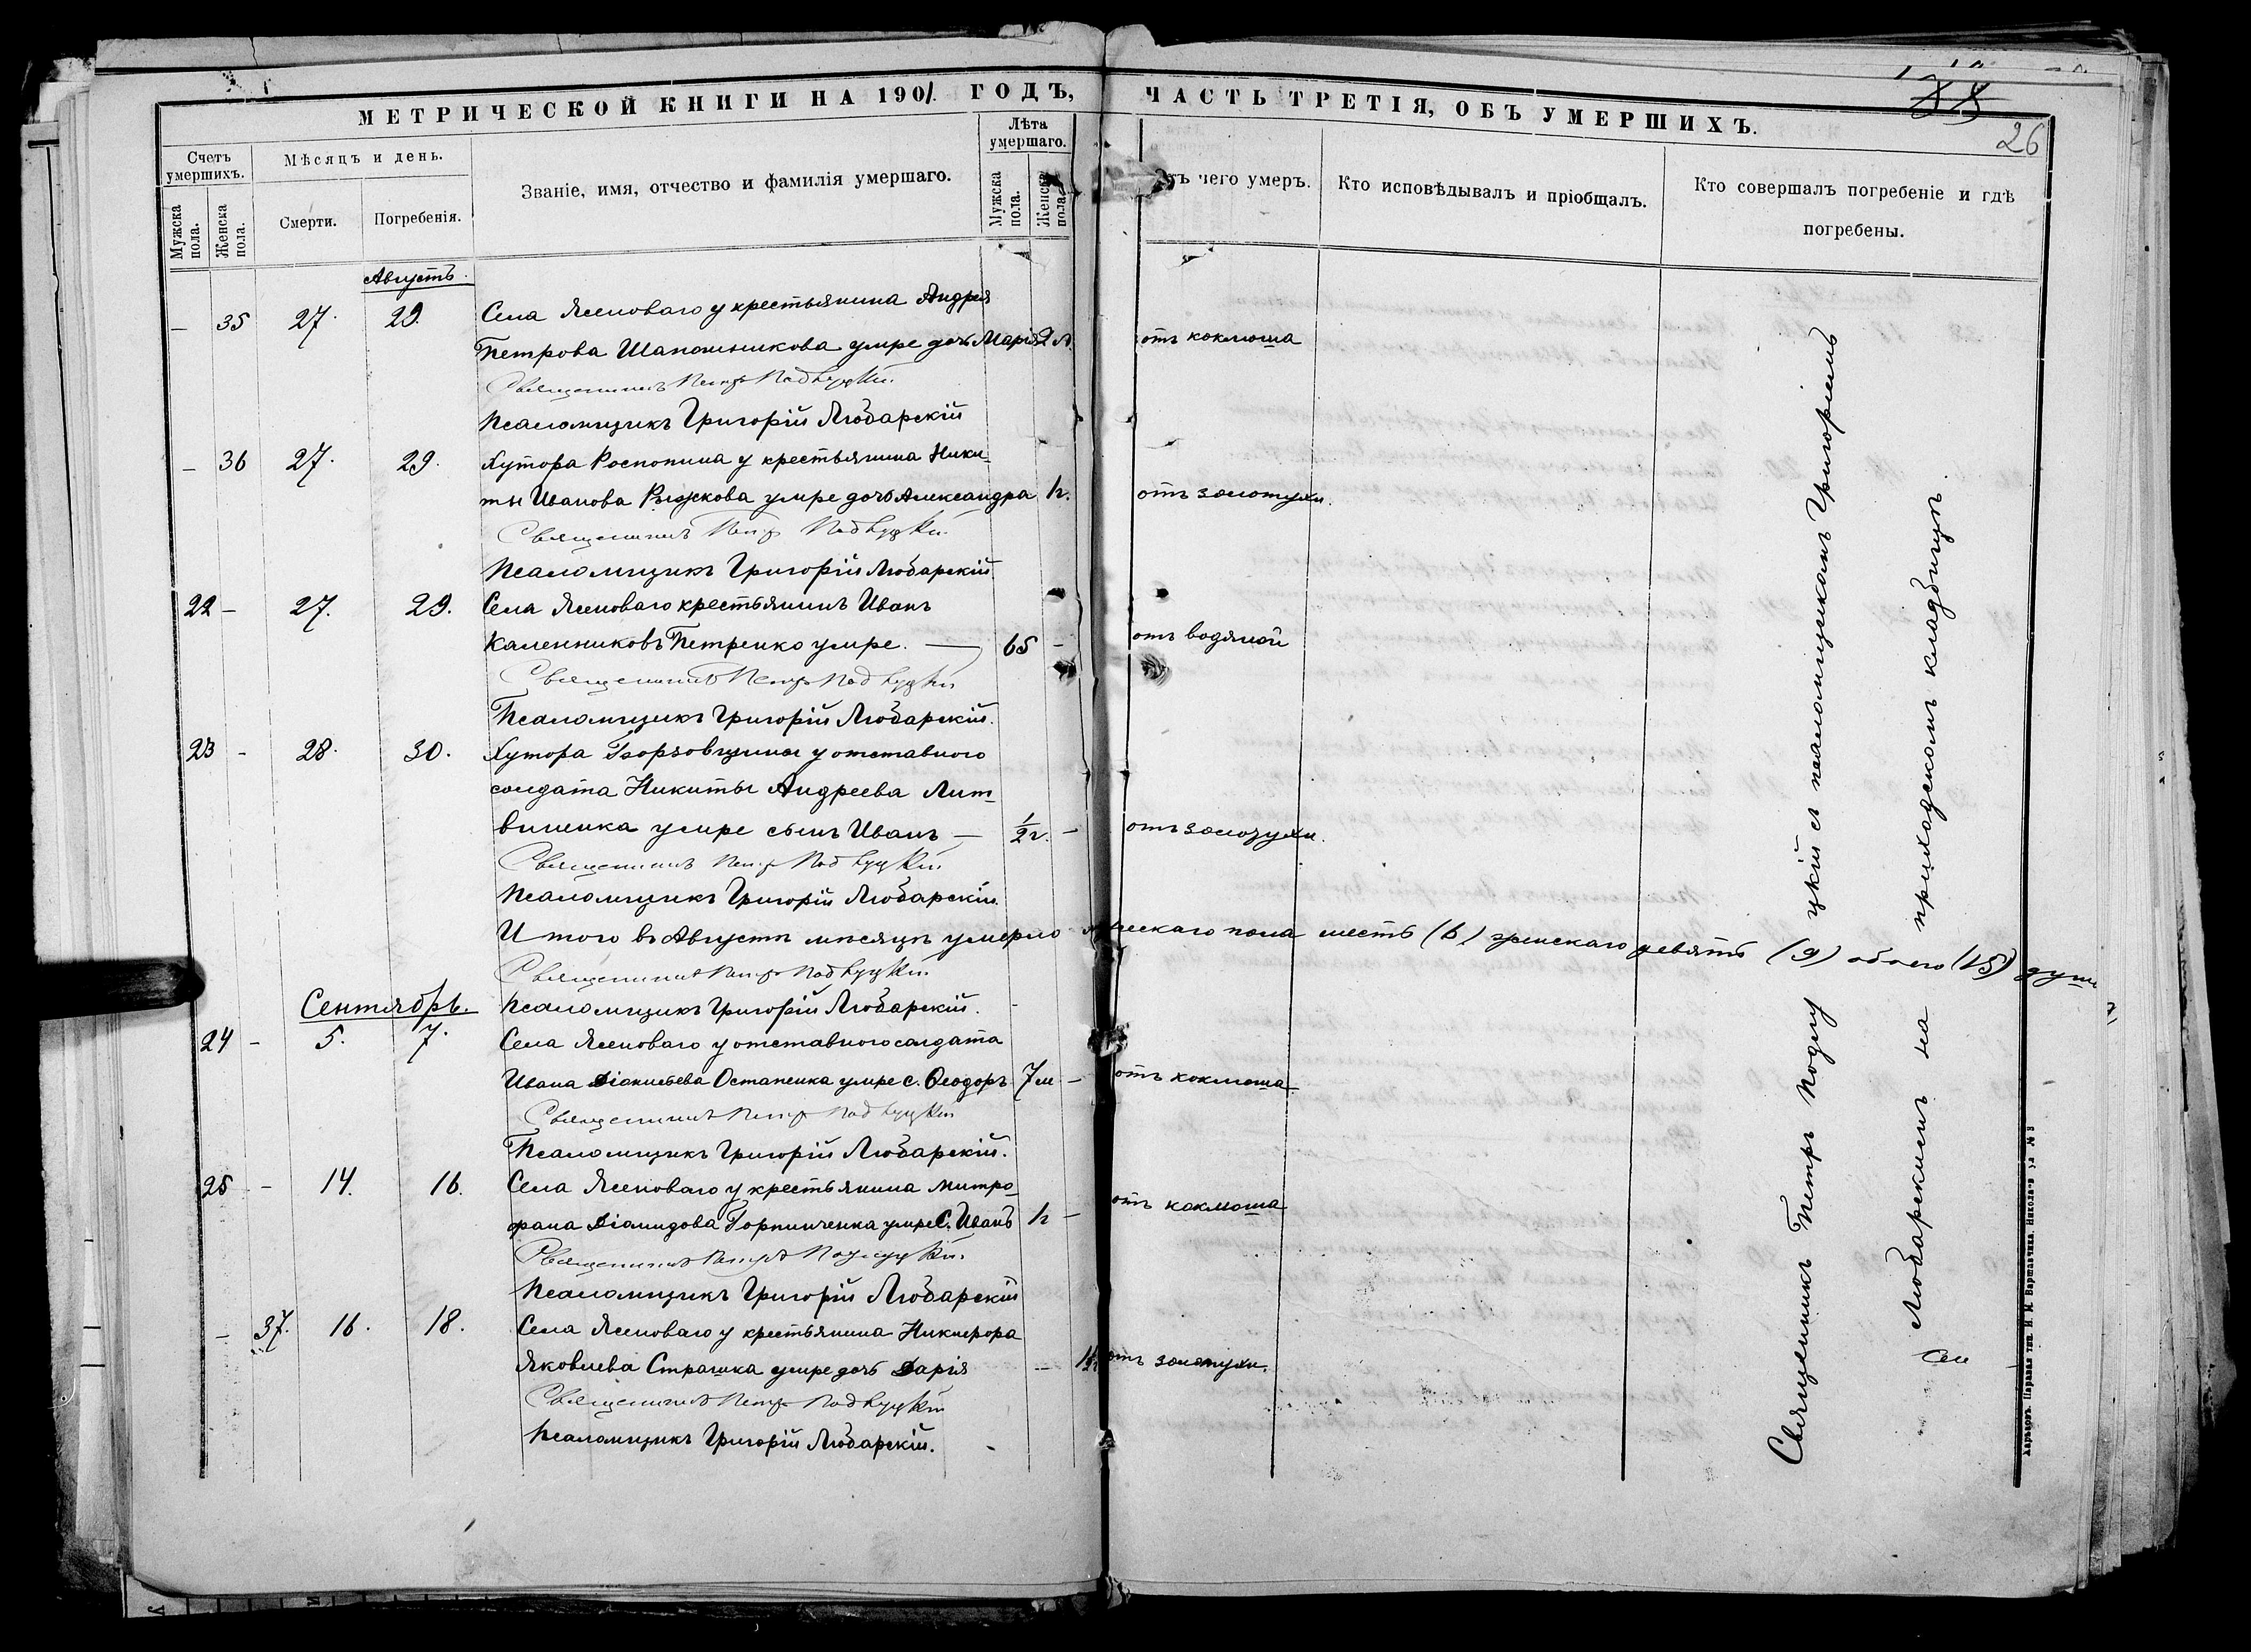 МЕТРИЧЕСКОЙ КНИГИ НА 1901 ГОДЪ, ЧАСТЬ ТРЕТІЯ, ОБЪ УМЕРШИХЪ.
26
Счетъ умершихъ.
Мужска пола.
Женска пола.
Мѣсяцъ и день.
Смерти.
Погребенія.
Званіе, имя, отчество и фамилія умершаго.
Лѣта умершаго.
Мужска пола.
Женска пола.
чего умеръ.
Кто исповѣдывалъ и пріобщалъ.
Кто совершалъ погребеніе и гдѣ
погребены.
Августъ.
— 35 27. 29. Села Ясеноваго у крестьянина Андрея
Петрова Шапошникова умре дочь Марія 2 л. отъ коклюша
Священникъ Петръ Подлуцкій.
Псаломщикъ Григорій Любарскій
— 36 27. 29. Хутора Роспопина у крестьянина Ники-
ты Иванова Рыжкова умре дочь Александра 1г. отъ золотухи.
Священникъ Петръ Подлуцкій.
Псаломщикъ Григорій Любарскій.
22 — 27. 29. Села Ясеноваго крестьянинъ Иванъ
Каленниковъ Петренко умре. — 65 — отъ водяной
Священникъ Петръ Подлуцкій
Псаломщикъ Григорій Любарскій.
23 - 28. 30. Хутора у отставного
солдата Никиты Андреева Лит-
виненка умре сынъ Иванъ — 1/2 г. — отъ золотухи.
Священникъ Петръ Подлуцкій.
Псаломщикъ Григорій Любарскій.
Итого въ Августѣ мѣсяцѣ умерло мужескаго пола шесть (6) женскаго девять (9) обоего (15) душъ
Священникъ Петръ Подлуцкій.
Сентябрь. Псаломщикъ Григорій Любарскій.
24 - 5. 7. Села Ясеноваго у отставного солдата
Ивана Діонисьева Остапенка умре с. Ѳеодоръ 7 м — отъ коклюша
Священникъ Петръ Подлуцкій
Псаломщикъ Григорій Любарскій.
25 - 14. 16. Села Ясеноваго у крестьянина Митро-
фана Діомидова Горпинченка умре с. Иванъ 1г — отъ коклюша
Священникъ Петръ Подлуцкій.
Псаломщикъ Григорій Любарскій
- 37. 16. 18. Села Ясеноваго у крестьянина Никифора
Яковлева Страшка умре дочь Дарія — отъ золотухи.
Священникъ Петръ Подлуцкій
Псаломщикъ Григорій Любарскій.
Священникъ Петръ Подлуцкій съ псаломщикомъ Григоріемъ
Любарскимъ на приходскомъ кладбищѣ.
Харьковъ. Паровая тип. И. М. Варшавчика Николаев ул № 3